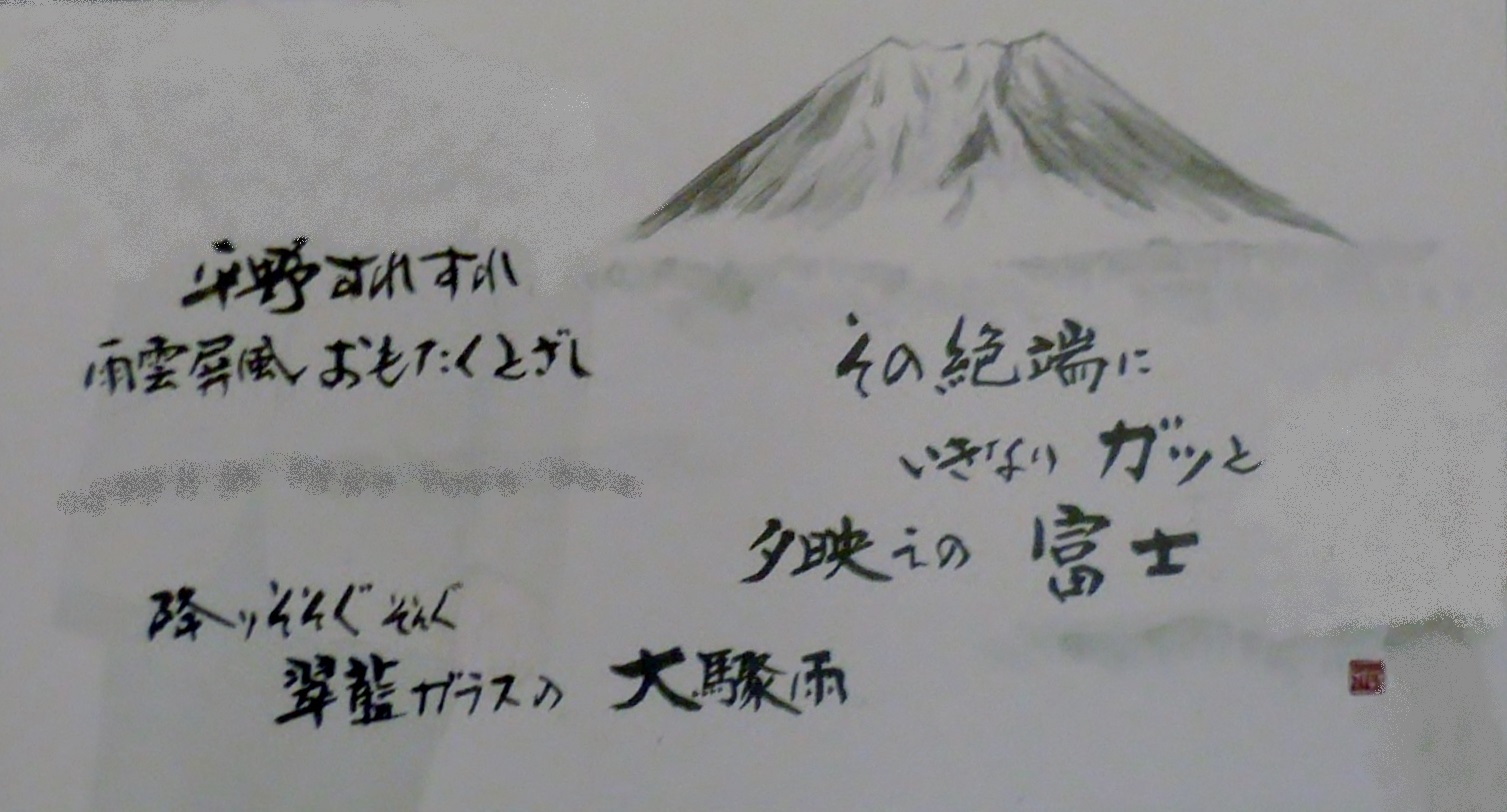 平野すれすれ
雨雲屏風おもたくとざし
その絶端に
いきなり ガッと
夕映えの 富士
降りそそぐそそぐ
翠藍ガラスの 大驟雨